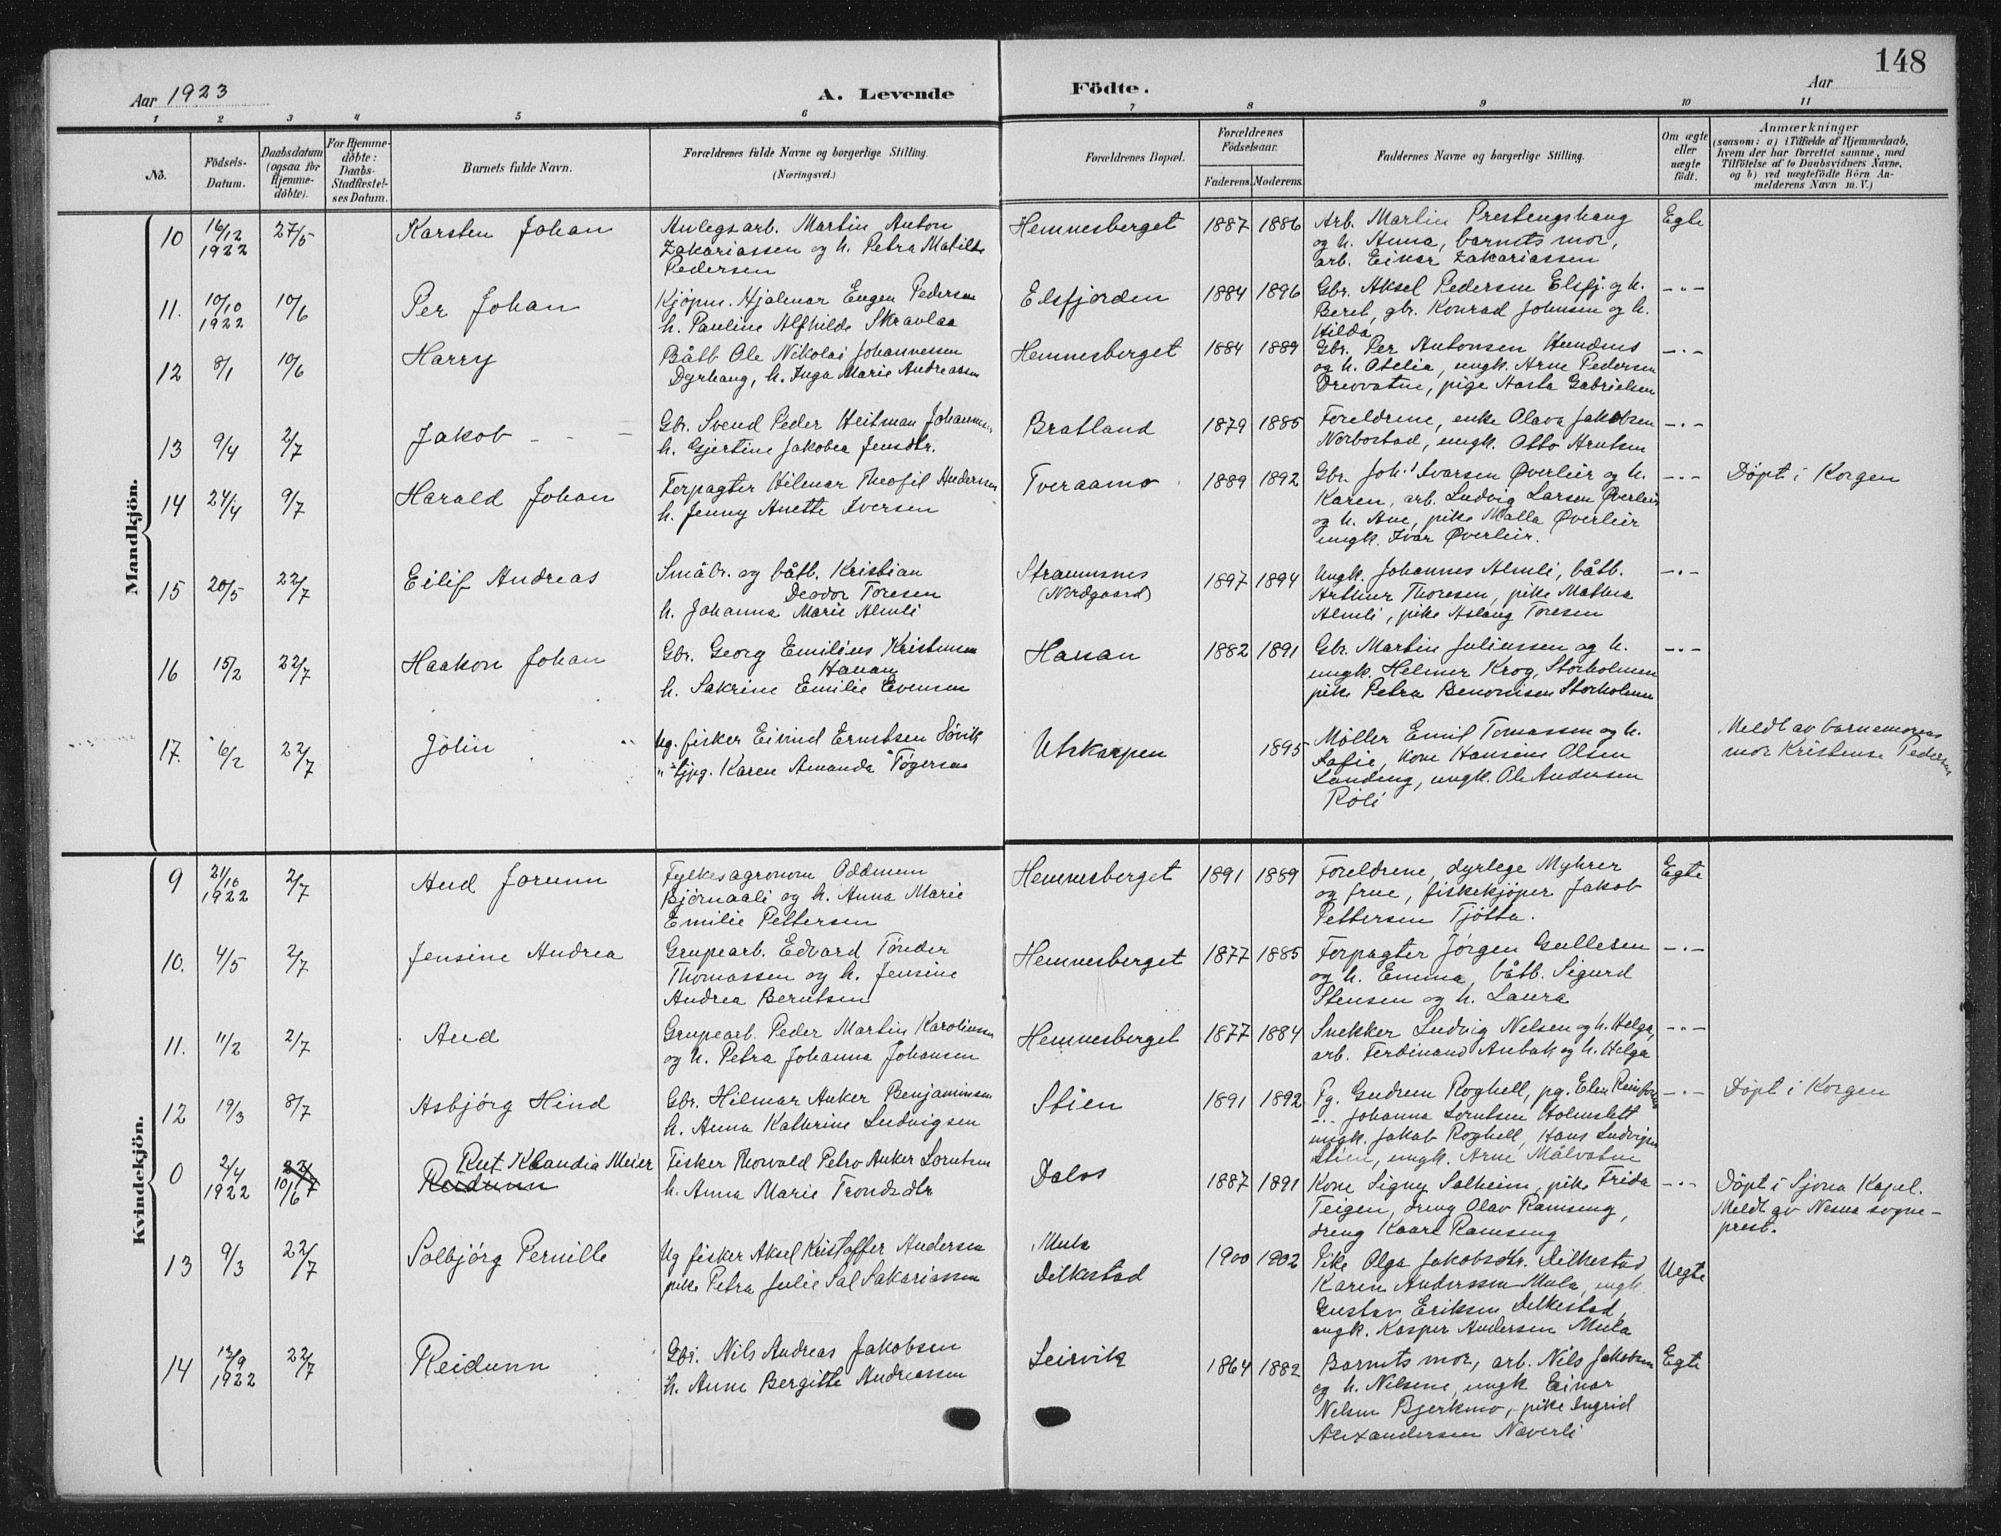 148
Aar 1923
A. Levende Födte.
Aar
1 2 3 4 5 6 7 8 9 10 11
No.
Födsels-Datum.
Daabsdatum (ogsaa for Hjemmedöbte).
For Hjemmedöbte: Daabs-Stadfæstelses Datum.
Barnets fulde Navn.
Forældrenes fulde Navne og borgerlige Stilling.
(Næringsvei.)
Forældrenes Bopæl.
Forældrenes Födselsaar.
Faderens. Moderens.
Faddernes Navne og borgerlige Stilling.
Om ægte eller uægte födt.
Anmærkninger
(saasom: a) i Tilfælde af Hjemmedaab,
hvem der har forrettet samme, med
Tilföielse af to Daabsvidners Navne,
og b) ved uægtefödte Börn Anmelderens Navn m. V.)
Mandkjön.
10 16/12 1922 27/5 Karsten Johan
Anlegsarb. Martin Anton
Zakariassen og h. Petra Matilde
Pedersen
Hemnesberget 1887 1886
Arb. Martin Prestengshaug
og h. Anna, barnets mor,
arb. Einar Zakariassen
Egte
11. 10/10 1922 10/6 Per Johan
Kjøpm. Hjalmar Eugen Pedersen
h. Pauline Alfhilde Skravlaa
Elsfjorden 1884 1896
Gbr. Aksel Pedersen Elsfj. og h.
Beret, gbr. Konrad Johnsen og h.
Hilda
-"-
12 8/1 10/6 Harry
Båtb Ole Nikolai Johannessen
Dyrhaug, h. Inga Marie Andreassen
Hemnesberget 1884 1889
Gbr. Per Antonsen
og h. Otelia, ungk. Arne Pedersen
Drevvatne, pige Hasta Gabrielsen
-"-
13 9/4 2/7 Jakob
Gbr. Svend Peder Heitman
h. Gjertine Jakobea Jensdtr.
Bratland 1879 1885
Foreldrene, enke Olava Jakobsen
Norbostad, ungk. Otto Arntsen
-"-
14 24/4 9/7 Harald Johan
Forpagter Hilmar Theofil Andersen
h. Jenny Anette Iversen
Tveraamo 1889 1892
Gbr. Joh. Ivarsen Øverleir og h.
Karen, arb. Ludvig Larsen Øverleir
og h. Ane, pike Malla Øverleir
ungk. Ivar Øverleir.
-"- Döpt i Korgen
15 20/5 22/7 Eilif Andreas
Småbr. og båtb. Kristian
Deodor Toresen
h. Johanna Marie Almli
Straumsnes
(Nordgaard)
1897 1894
Ungk. Johannes Almli, båtb.
Arthur Thoresen, pike Mathea
Almli, pike Aslaug Toresen
-"-
16 15/2 22/7 Haakon Johan
Gbr. Georg Emilius Kristensen
Hauan
h. Sakrine Emilie Evensen
Hauan 1882 1891
Gbr. Martin Juliussen og h.
ungk. Helmer Krog, Storholmen
pike Petra Benonisen Storholmen
-"-
17. 6/2 22/7 John
Ug. fisker Eivind Erntsen Søvik
" tjpg. Karen Amanda Tøgersen
Utskarpen 1895
Møller Emil Tomassen og h.
Sofie, kone Hansine Olsen
Landeng, ungk. Ole Andersen
Röli
Meldt av barnemorens
mor Kristense Pedersen
Kvindekjön.
9 21/10 1922 2/7 Aud Jorunn
Fylkesagronom Oddmun
Bjørnaali og h. Anna Marie
Emilie Pettersen
Hemnesberget 1891 1889
Foreldrene, dyrlege Myhrer
og frue, fiskekjøper Jakob
Pettersen Tjötta.
Egte
10. 4/5 2/7 Jensine Andrea
Grupearb. Edvard Tönder
Thomassen og h. Jensine
Andrea Berntsen
Hemnesberget 1877 1885
Forpagter Jörgen Gullesen
og h. Emma, båtb. Sigurd
Stensen og h. Laura
-"-
11. 11/2 2/7 Aud
Grupearb. Peder Martin Karoliussen
og h. Petra Johanna Johansen
Hemnesberget 1877 1884
Snekker Ludvig Nelsen og h. Helga,
arb. Ferdinand Aubak og h. Helga
-"-
12 19/3 8/7 Asbjörg Hind
Gbr. Hilmar Anker Benjaminsen
h. Anna Kathrine Ludvigsen
Stien 1891 1892
Pg. Gudrun Roghell, pg. Elen
-"- Johanna Lorntsen Holmslett
ungk. Jakob Roghell, Hans Ludvigsen
Stien, ungk. Arne Målvatne
-"- Döpt i Korgen
0 2/4 1922 22/7 10/6 Rut Klaudia Meier
Reidunn
Fisker Thorvald Petro Anker Lorntsen
h. Anna Marie Trondsdtr
Dalos 1887 1891
Kone Signy Solheim, pike Frida
Teigen, dreng Olav Ramseng,
dreng Kaare Ramseng
-"- Döpt i Sjona Kapel.
Meldt av Nesna sogne-
prest.
13 9/3 22/7 Solbjörg Pernille
Ug fisker Aksel Kristoffer Andersen
pike Petra Julie Sal Sakariassen
Mula
Dilkestad
1900 1902
Pike Olga Jakobsdtr. Dilkestad
Karen Anderssen Mula, ungk.
Gustav Eriksen Dilkestad,
ungk. Kasper Andersen Mula
Uegte
14 12/9 1922 22/7 Reidunn
Gbr. Nils Andreas Jakobsen
h. Anne Bergitte Andreassen
Leirvik 1864 1882
Barnets mor, arb. Nils Jakobsen
og h. Nelsine, ungk Einar
Nelsen Bjerkmo, pike Ingrid
Alexandersen Naverli
Egte